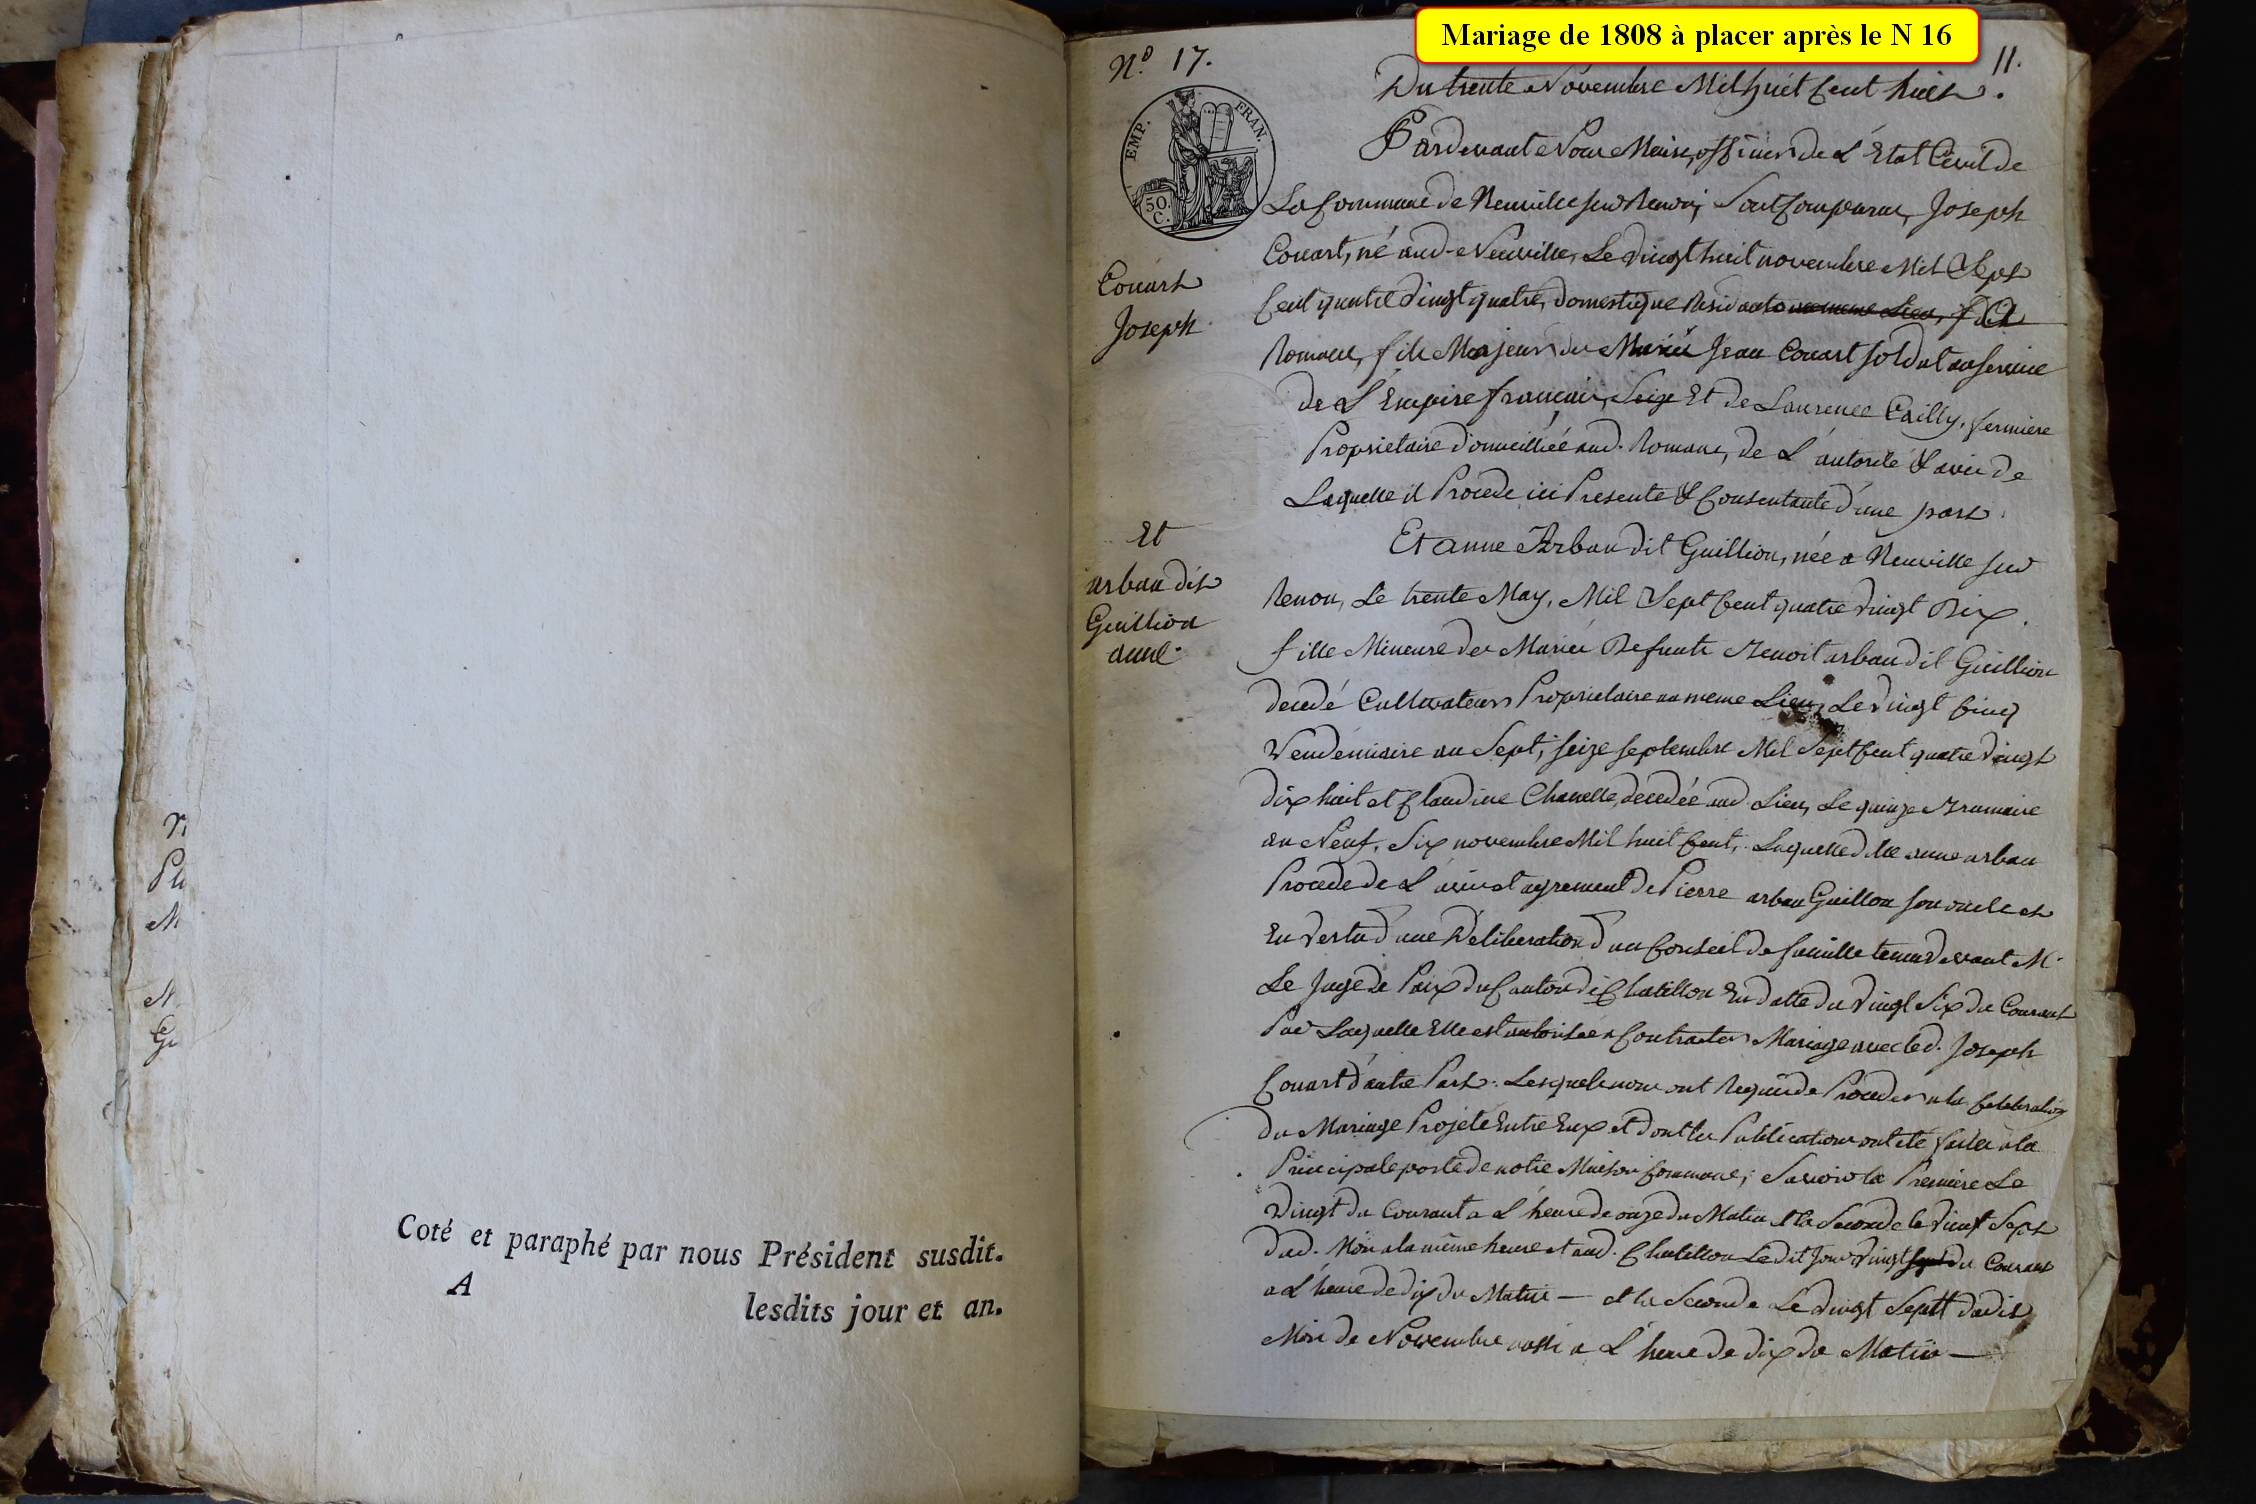 Mariage de 1808 à placer après le N 16
Coté et paraphé par nous Président susdit.
A lesdits jour et an.
N.o 17.
11.
EMP. FRAN.
50.
C.
Couart
Joseph
Et
arban dit
Guillion
anne.
Du trente Novembre Mil huit Cent huit.
Pardevant Nous Maire, officier de L'Etat Civil de
La Commune de Neuville sur Renon, Sont Comparus, Joseph
Couart, né aud. Neuville, Le vingt huit novembre Mil Sept
Cent quatre vingt quatre, domestique Residant au meme Lieu,
Romans, fils Majeur des Mariés Jean Couart soldat au service
de L'Empire français, Et de Laurence Cailly, fermiere
Proprietaire domeilliée aud. Romans, de L'autorité & avis de
Laquelle il Procede ici Presente & Consentante d'une part.
Et anne Arban dit Guillion, née a Neuville sur
Renon, Le trente May, Mil Sept Cent quatre vingt Dix.
fille Mineure des Mariés Defunts Benoit arban dit Guillion
decedé Cultivateur Proprietaire au meme Lieu, Le vingt Cinq
Vendemiaire an Sept, seize septembre Mil Sept Cent quatre vingt
dix huit et Claudine Chanelle, decedée aud. Lieu, Le quinze Brumaire
an Neuf, Six novembre Mil huit Cent, Laquelle dite anne arban
Procede de L'avis et agrement de Pierre arban Guillon son oncle et
En Vertu d'une Déliberation d'un Conseil de famille tenu devant M.
Le Juge de Paix du Canton de Chatillon En datte du vingt Six du Courant
Par Laquelle Elle est autorisée a Contracter Mariage avec led. Joseph
Couart d'autre Part. Lesquels nous ont Requis de Proceder a la Celebration
du Mariage Projeté Entre Eux et dont les Publications ont été faites a la
Principale porte de notre Maison Commune; Savoir la Premiere Le
Vingt du Courant a L'heure de onze du Matin et la Seconde le vingt Sept
dud. Mois a la même heure et aud. Chatillon Le dit Jour vingt sept du Courant
a L'heure de dix du Matin — et la Seconde Le vingt Sept dudit
Mois de Novembre aussi a L'heure de dix du Matin —